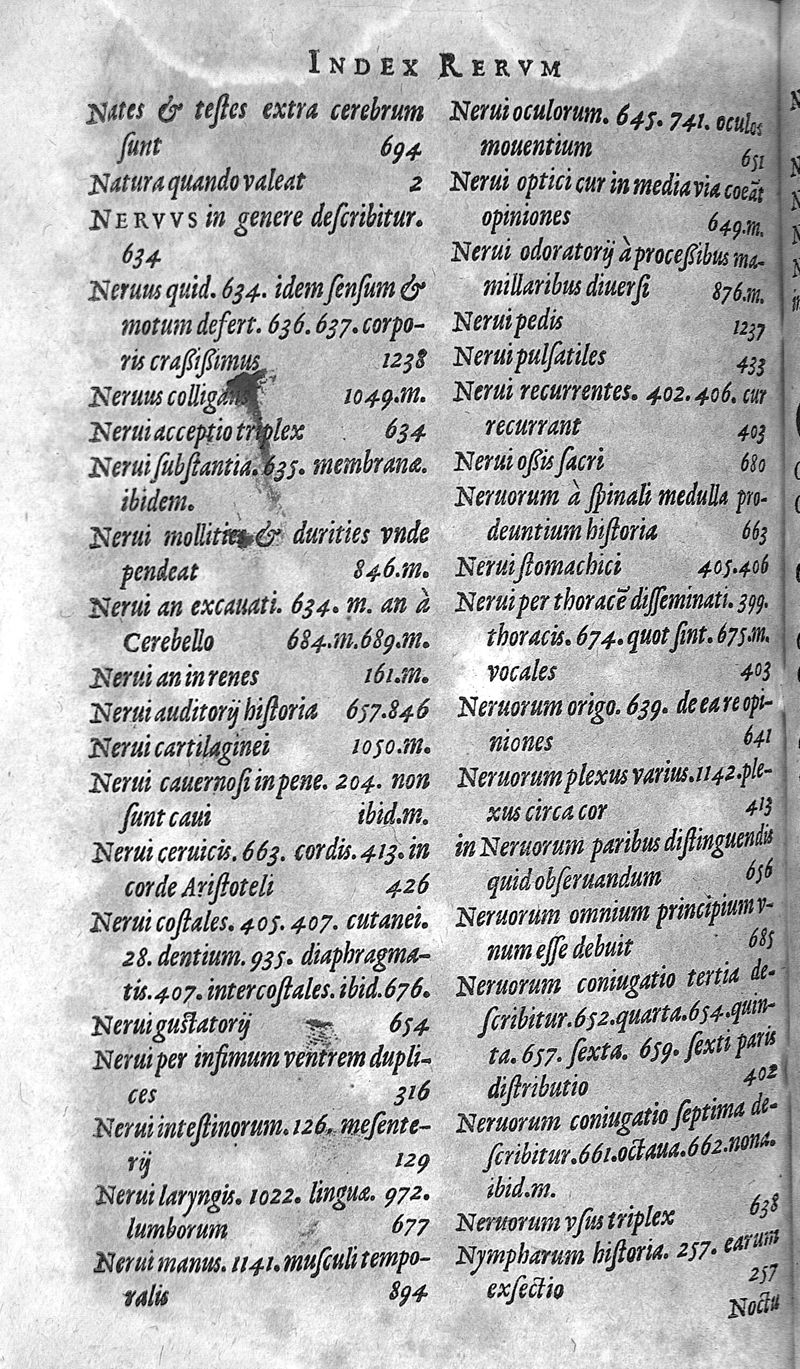 INDEX RERVM
Nates & testes extra cerebrum
sunt 694
Natura quando valeat 2
NERVVS in genere describitur.
634
Neruus quid. 634. idem sensum &
motum defert. 636. 637. corpo-
ris crassissimus 1238
Neruus colligans 1049.m.
Nerui acceptio triplex 634
Nerui substantia. 635. membranæ.
ibidem.
Nerui mollities & durities vnde
pendeat 846.m.
Nerui an excauati. 634. m. an à
Cerebello 684.m.689.m.
Nerui an in renes 161.m.
Nerui auditorij historia 657.846
Nerui cartilaginei 1050.m.
Nerui cauernosi in pene. 204. non
sunt caui ibid.m.
Nerui ceruicis. 663. cordis. 413. in
corde Aristoteli 426
Nerui costales. 405. 407. cutanei.
28. dentium. 935. diaphragma-
tis. 407. intercostales. ibid. 676.
Nerui gustatorij 654
Nerui per infimum ventrem dupli-
ces 316
Nerui intestinorum. 126. mesente-
rij 129
Nerui laryngis. 1022. linguæ. 972.
lumborum 677
Nerui manus. 1141. musculi tempo-
ralis 894
Nerui oculorum. 645. 741. oculos
mouentium 651
Nerui optici cur in media via coeāt
opiniones 649.m.
Nerui odoratorij à processibus ma-
millaribus diuersi 876.m.
Nerui pedis 1237
Nerui pulsatiles 433
Nerui recurrentes. 402. 406. cur
recurrant 403
Nerui ossis sacri 680
Neruorum à spinali medulla pro-
deuntium historia 663
Nerui stomachici 405.406
Nerui per thoracē disseminati. 399.
thoracis. 674. quot sint. 675.m.
vocales 403
Neruorum origo. 639. de ea re opi-
niones 641
Neruorum plexus varius. 1142. ple-
xus circa cor 413
in Neruorum paribus distinguendis
quid obseruandum 656
Neruorum omnium principium v-
num esse debuit 685
Neruorum coniugatio tertia de-
scribitur. 652. quarta. 654. quin-
ta. 657. sexta. 659. sexti paris
distributio 402
Neruorum coniugatio septima de-
scribitur. 661. octaua. 662. nona.
ibid.m.
Neruorum vsus triplex 638
Nympharum historia. 257. earum
exsectio 257
Noctu